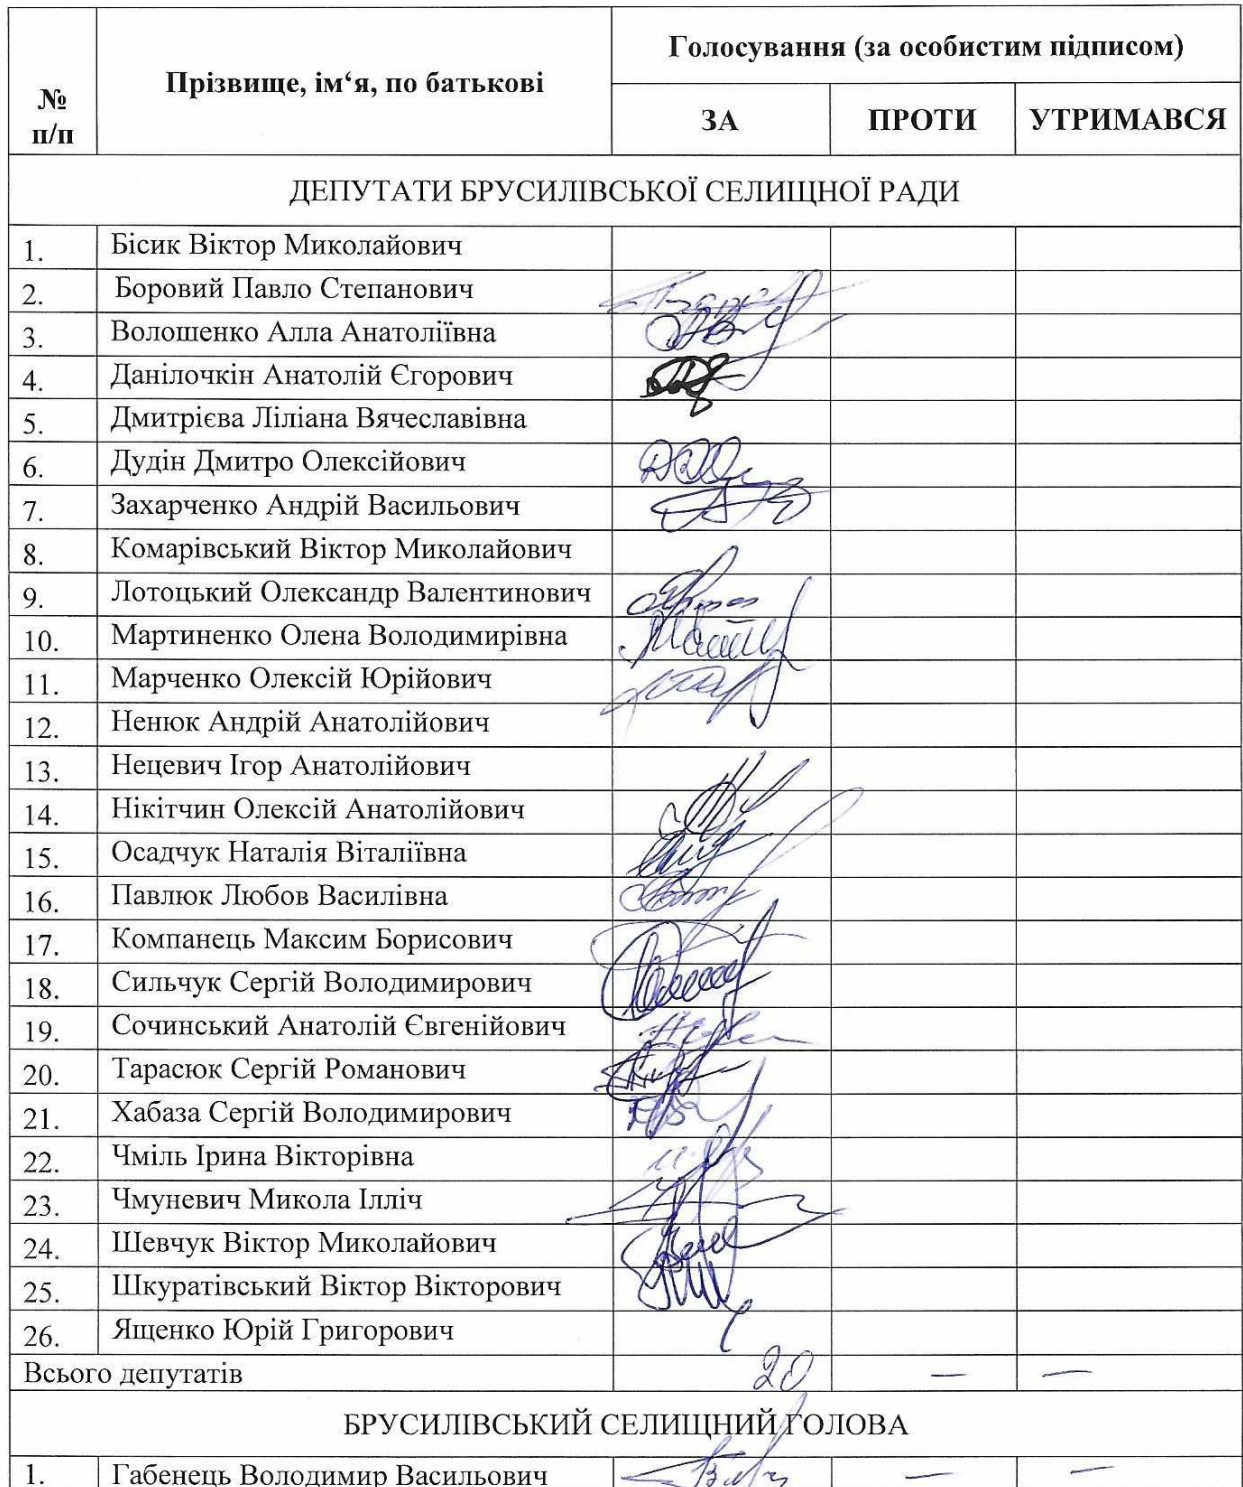 № п/п Прізвище, ім‘я, по батькові Голосування (за особистим підписом)
ЗА ПРОТИ УТРИМАВСЯ
ДЕПУТАТИ БРУСИЛІВСЬКОЇ СЕЛИЩНОЇ РАДИ
1. Бісик Віктор Миколайович
2. Боровий Павло Степанович
3. Волошенко Алла Анатоліївна
4. Данілочкін Анатолій Єгорович
5. Дмитрієва Ліліана Вячеславівна
6. Дудін Дмитро Олексійович
7. Захарченко Андрій Васильович
8. Комарівський Віктор Миколайович
9. Лотоцький Олександр Валентинович
10. Мартиненко Олена Володимирівна
11. Марченко Олексій Юрійович
12. Ненюк Андрій Анатолійович
13. Нецевич Ігор Анатолійович
14. Нікітчин Олексій Анатолійович
15. Осадчук Наталія Віталіївна
16. Павлюк Любов Василівна
17. Компанець Максим Борисович
18. Сильчук Сергій Володимирович
19. Сочинський Анатолій Євгенійович
20. Тарасюк Сергій Романович
21. Хабаза Сергій Володимирович
22. Чміль Ірина Вікторівна
23. Чмуневич Микола Ілліч
24. Шевчук Віктор Миколайович
25. Шкуратівський Віктор Вікторович
26. Ященко Юрій Григорович
Всього депутатів 20 — —
БРУСИЛІВСЬКИЙ СЕЛИЩНИЙ ГОЛОВА
1. Габенець Володимир Васильович — —